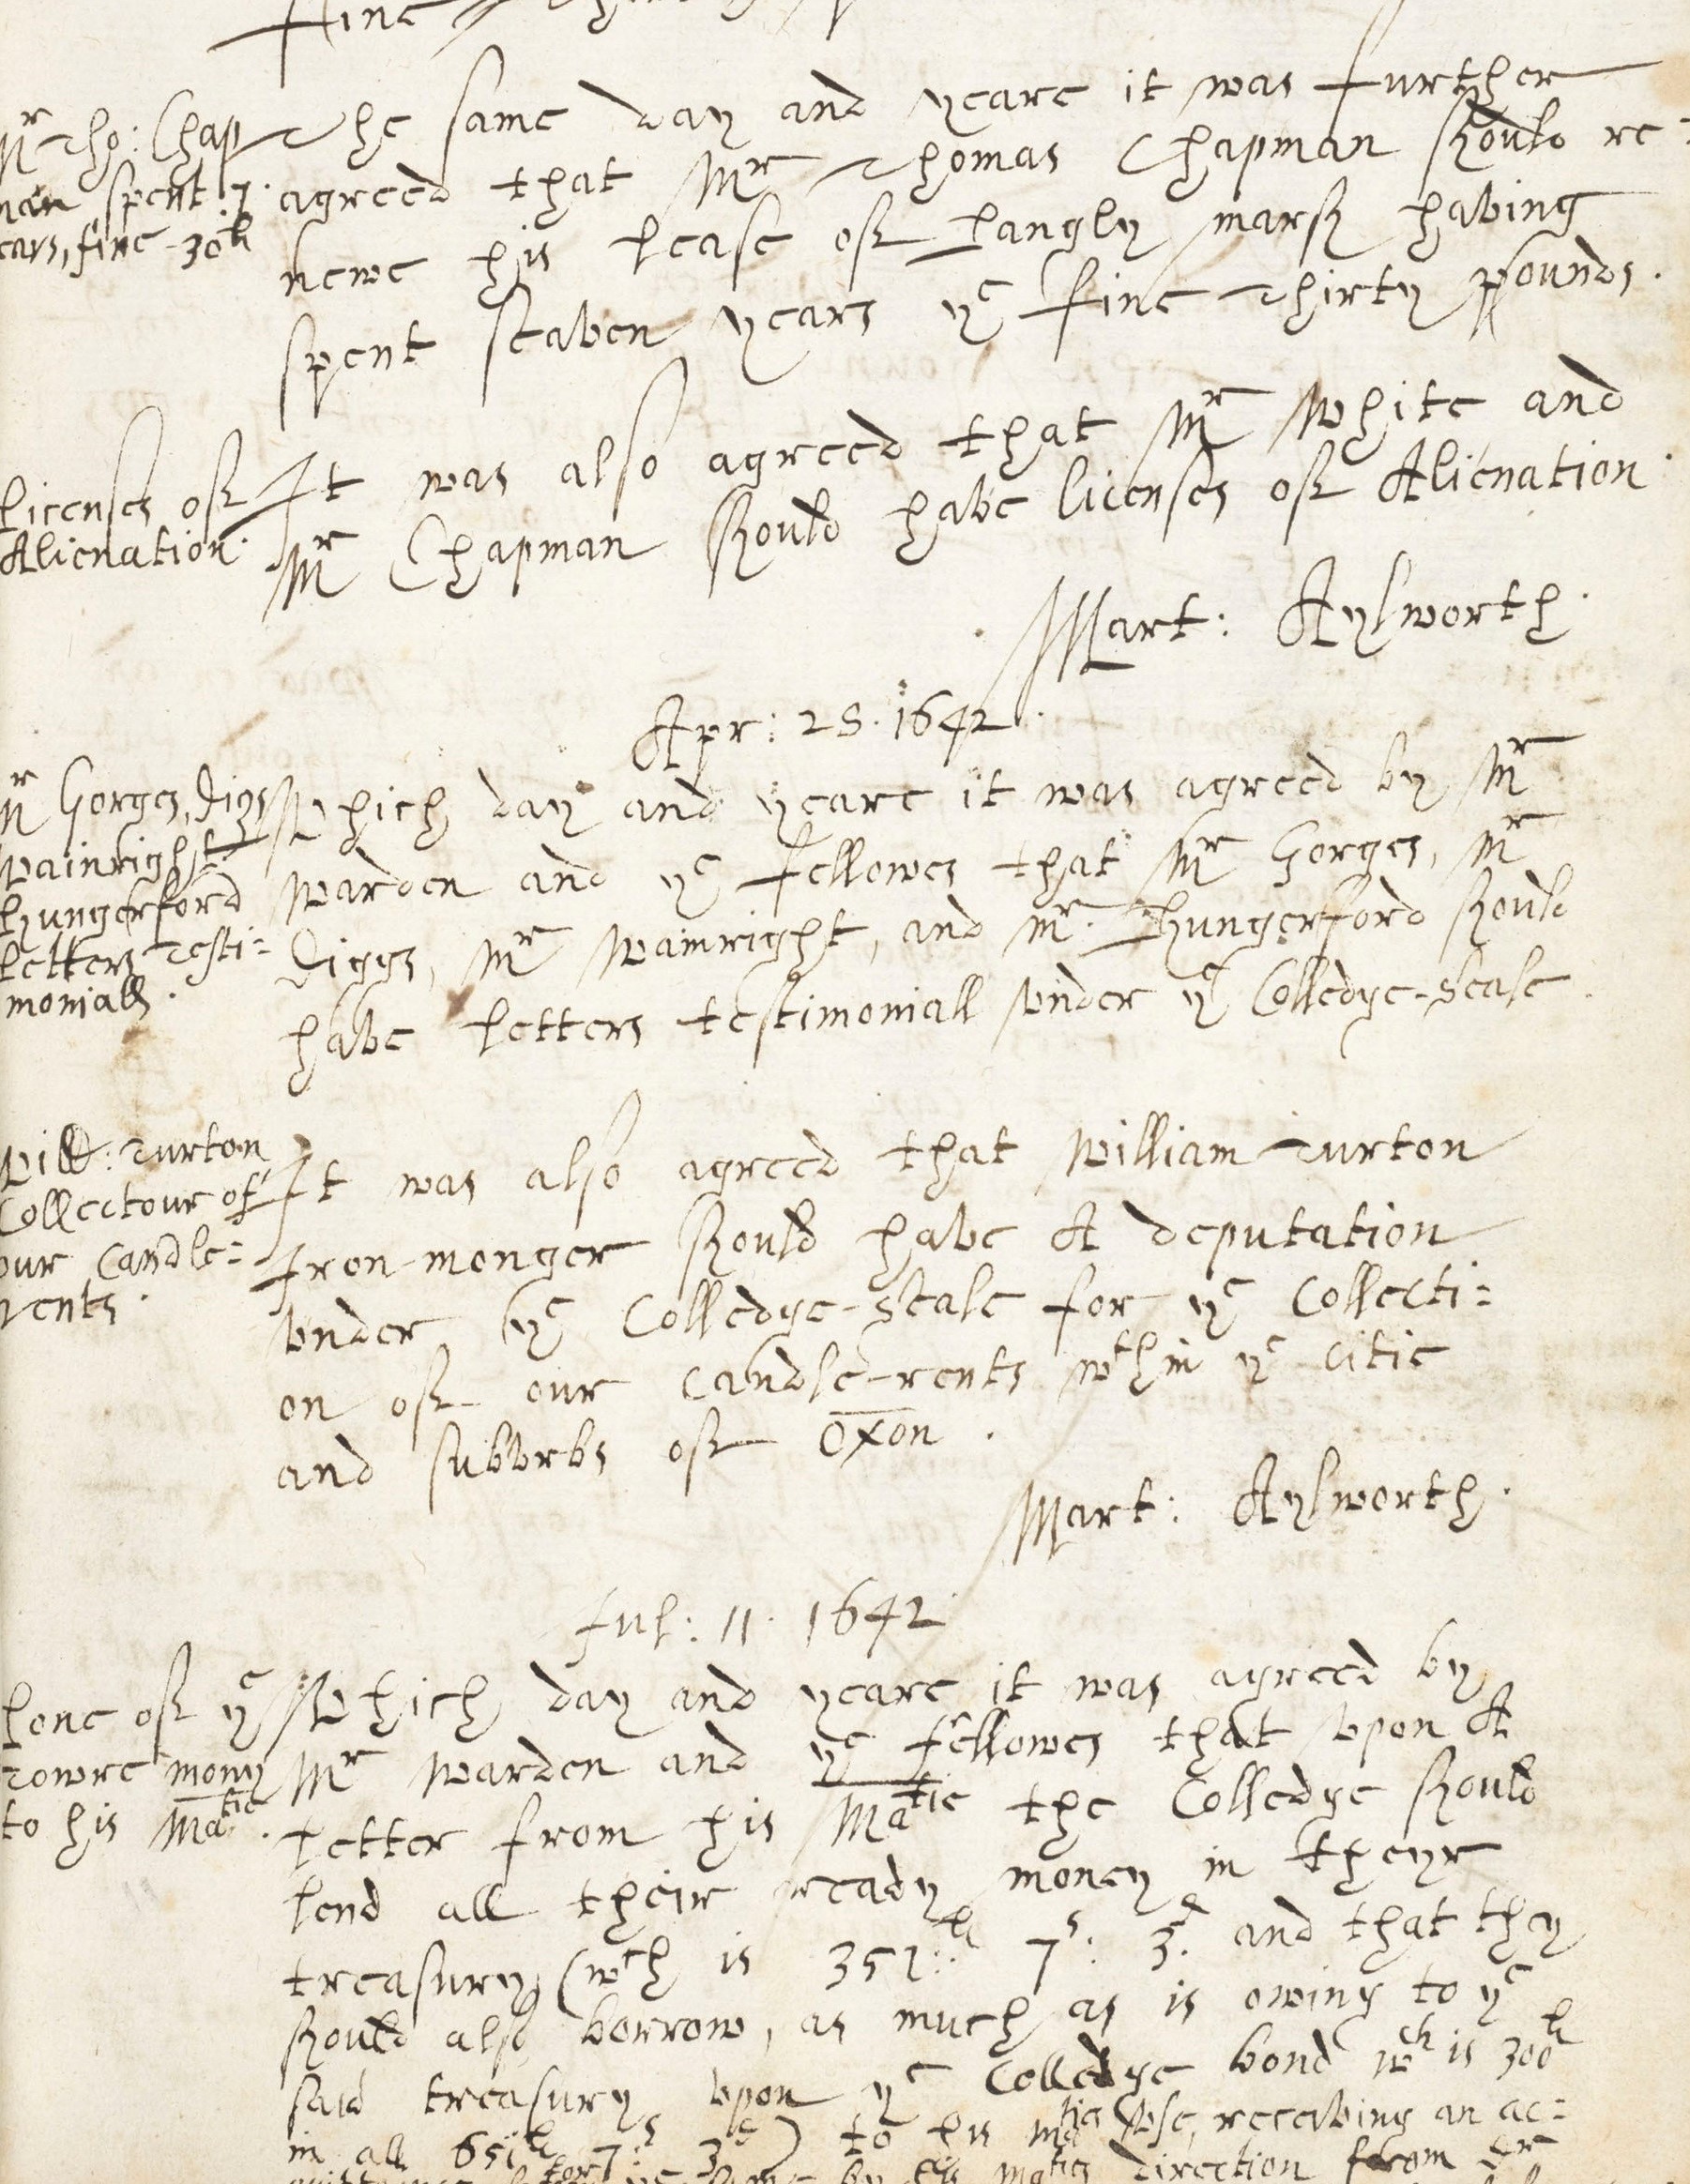 Fine
Mr Tho: Chap
man spent 7.
ears, fine - 30li
The same day and yeare it was further
agreed that Mr Thomas Chapman should re=
newe his lease of Langly marsh having
spent seaven years ye fine Thirty pounds.
Licenses of
Alienation.
It was also agreed that Mr White and
Mr Chapman should have licenses of Alienation.
Mart: Aylworth.
Apr: 28. 1642.
Mr Gorges, Digs
Wainright
Hungerford
Letters Testi=
moniall.
Which day and yeare it was agreed by Mr
Warden and ye fellowes that Mr Gorges, Mr
Diggs, Mr Wainright, and Mr. Hungerford should
have Letters testimoniall vnder ye Colledge-Seale.
Will: Turton
Collectour of
our Candle=
rents.
It was also agreed that William Turton
Iron-monger should have A deputation
vnder ye Colledge-Seale for ye Collecti=
on of our Candle-rents wthin ye Citie
and subvrbs of Oxon.
Mart: Aylworth.
Jul: 11. 1642
Lone of ye
Towre mony
to his Matie.
Which day and yeare it was agreed by
Mr Warden and ye fellowes that vpon A
Letter from his Matie the Colledge should
lend all their ready money in theyr
treasury (wch is 351li: 7s: 3d. and that they
should also borrow, as much as is owing to ye
said treasury vpon ye Colledge bond wch is 300li
in all 651li 7s 3d) to his Maties vse, receiving an ac=
by his Maties direction from